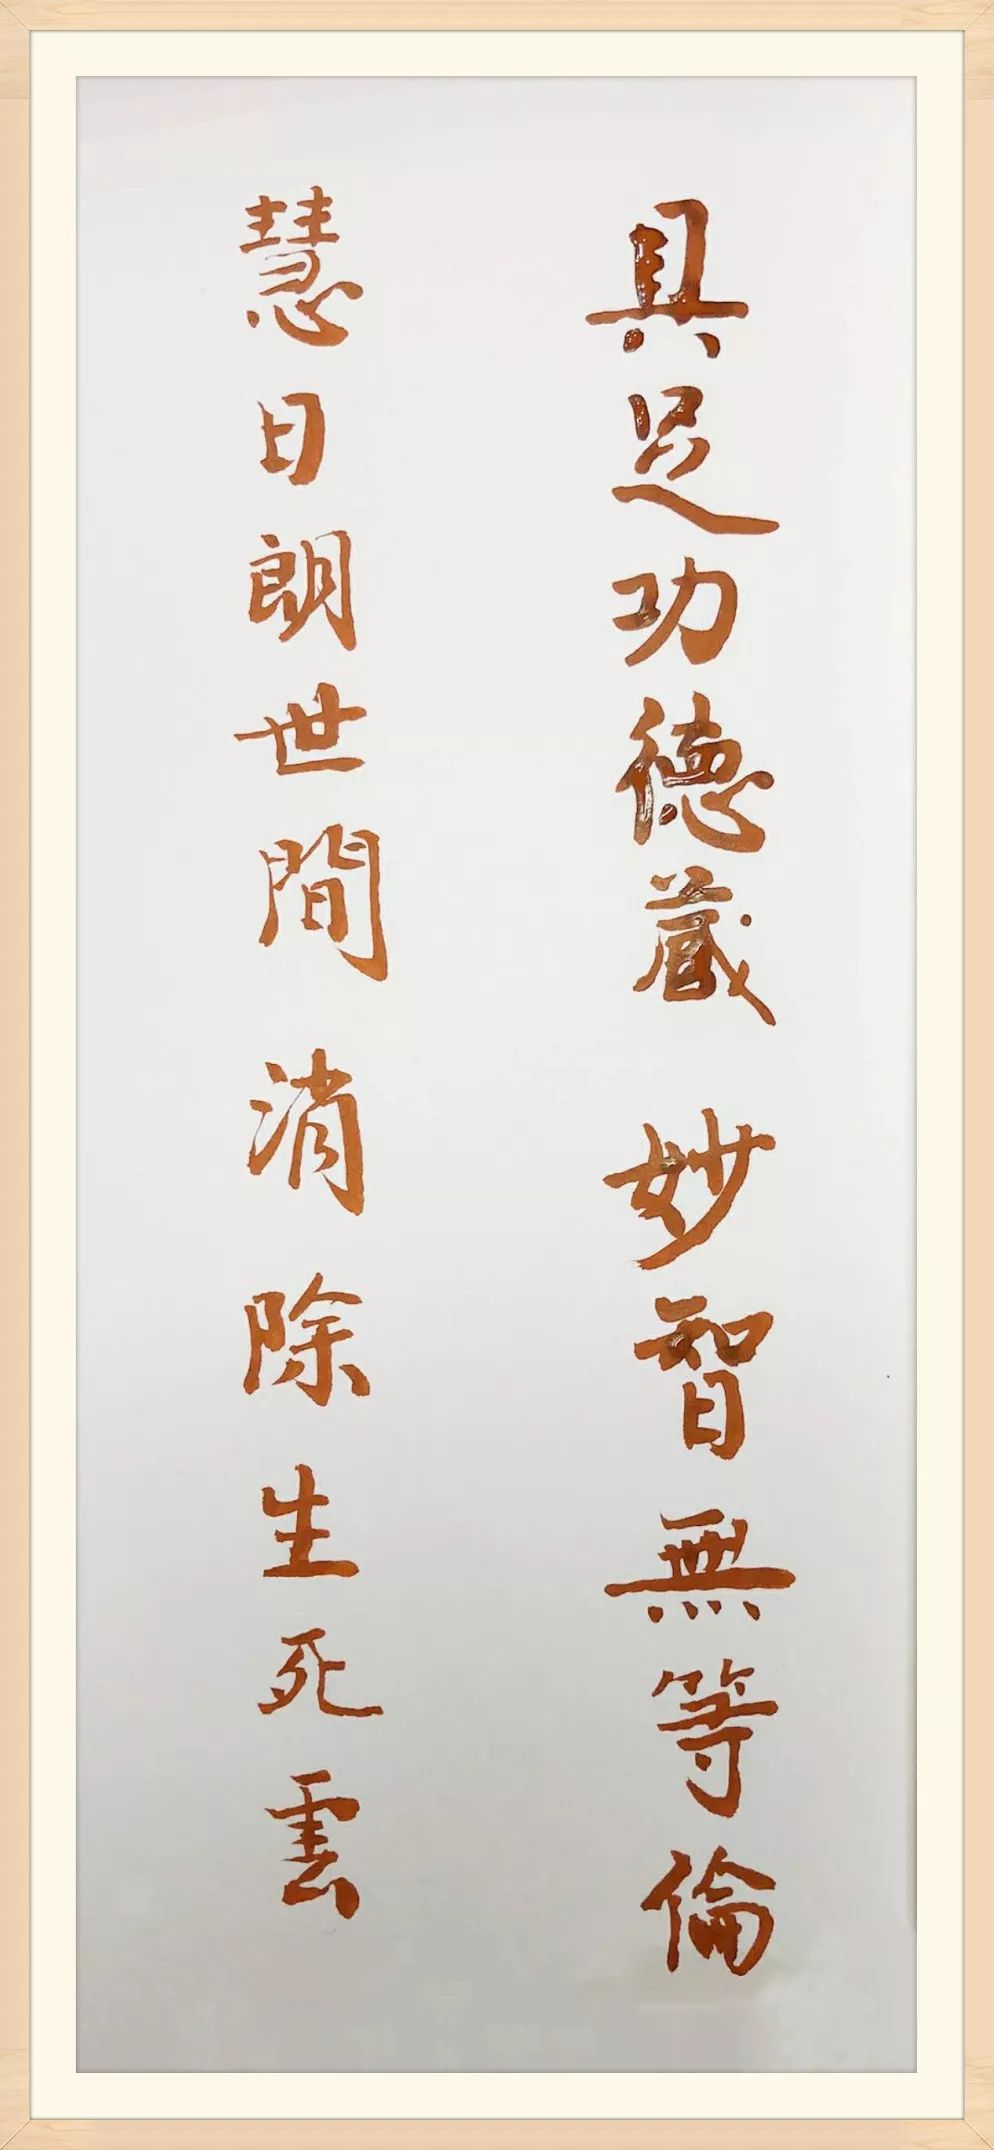 具足功德藏 妙智無等倫
慧日朗世間 消除生死雲